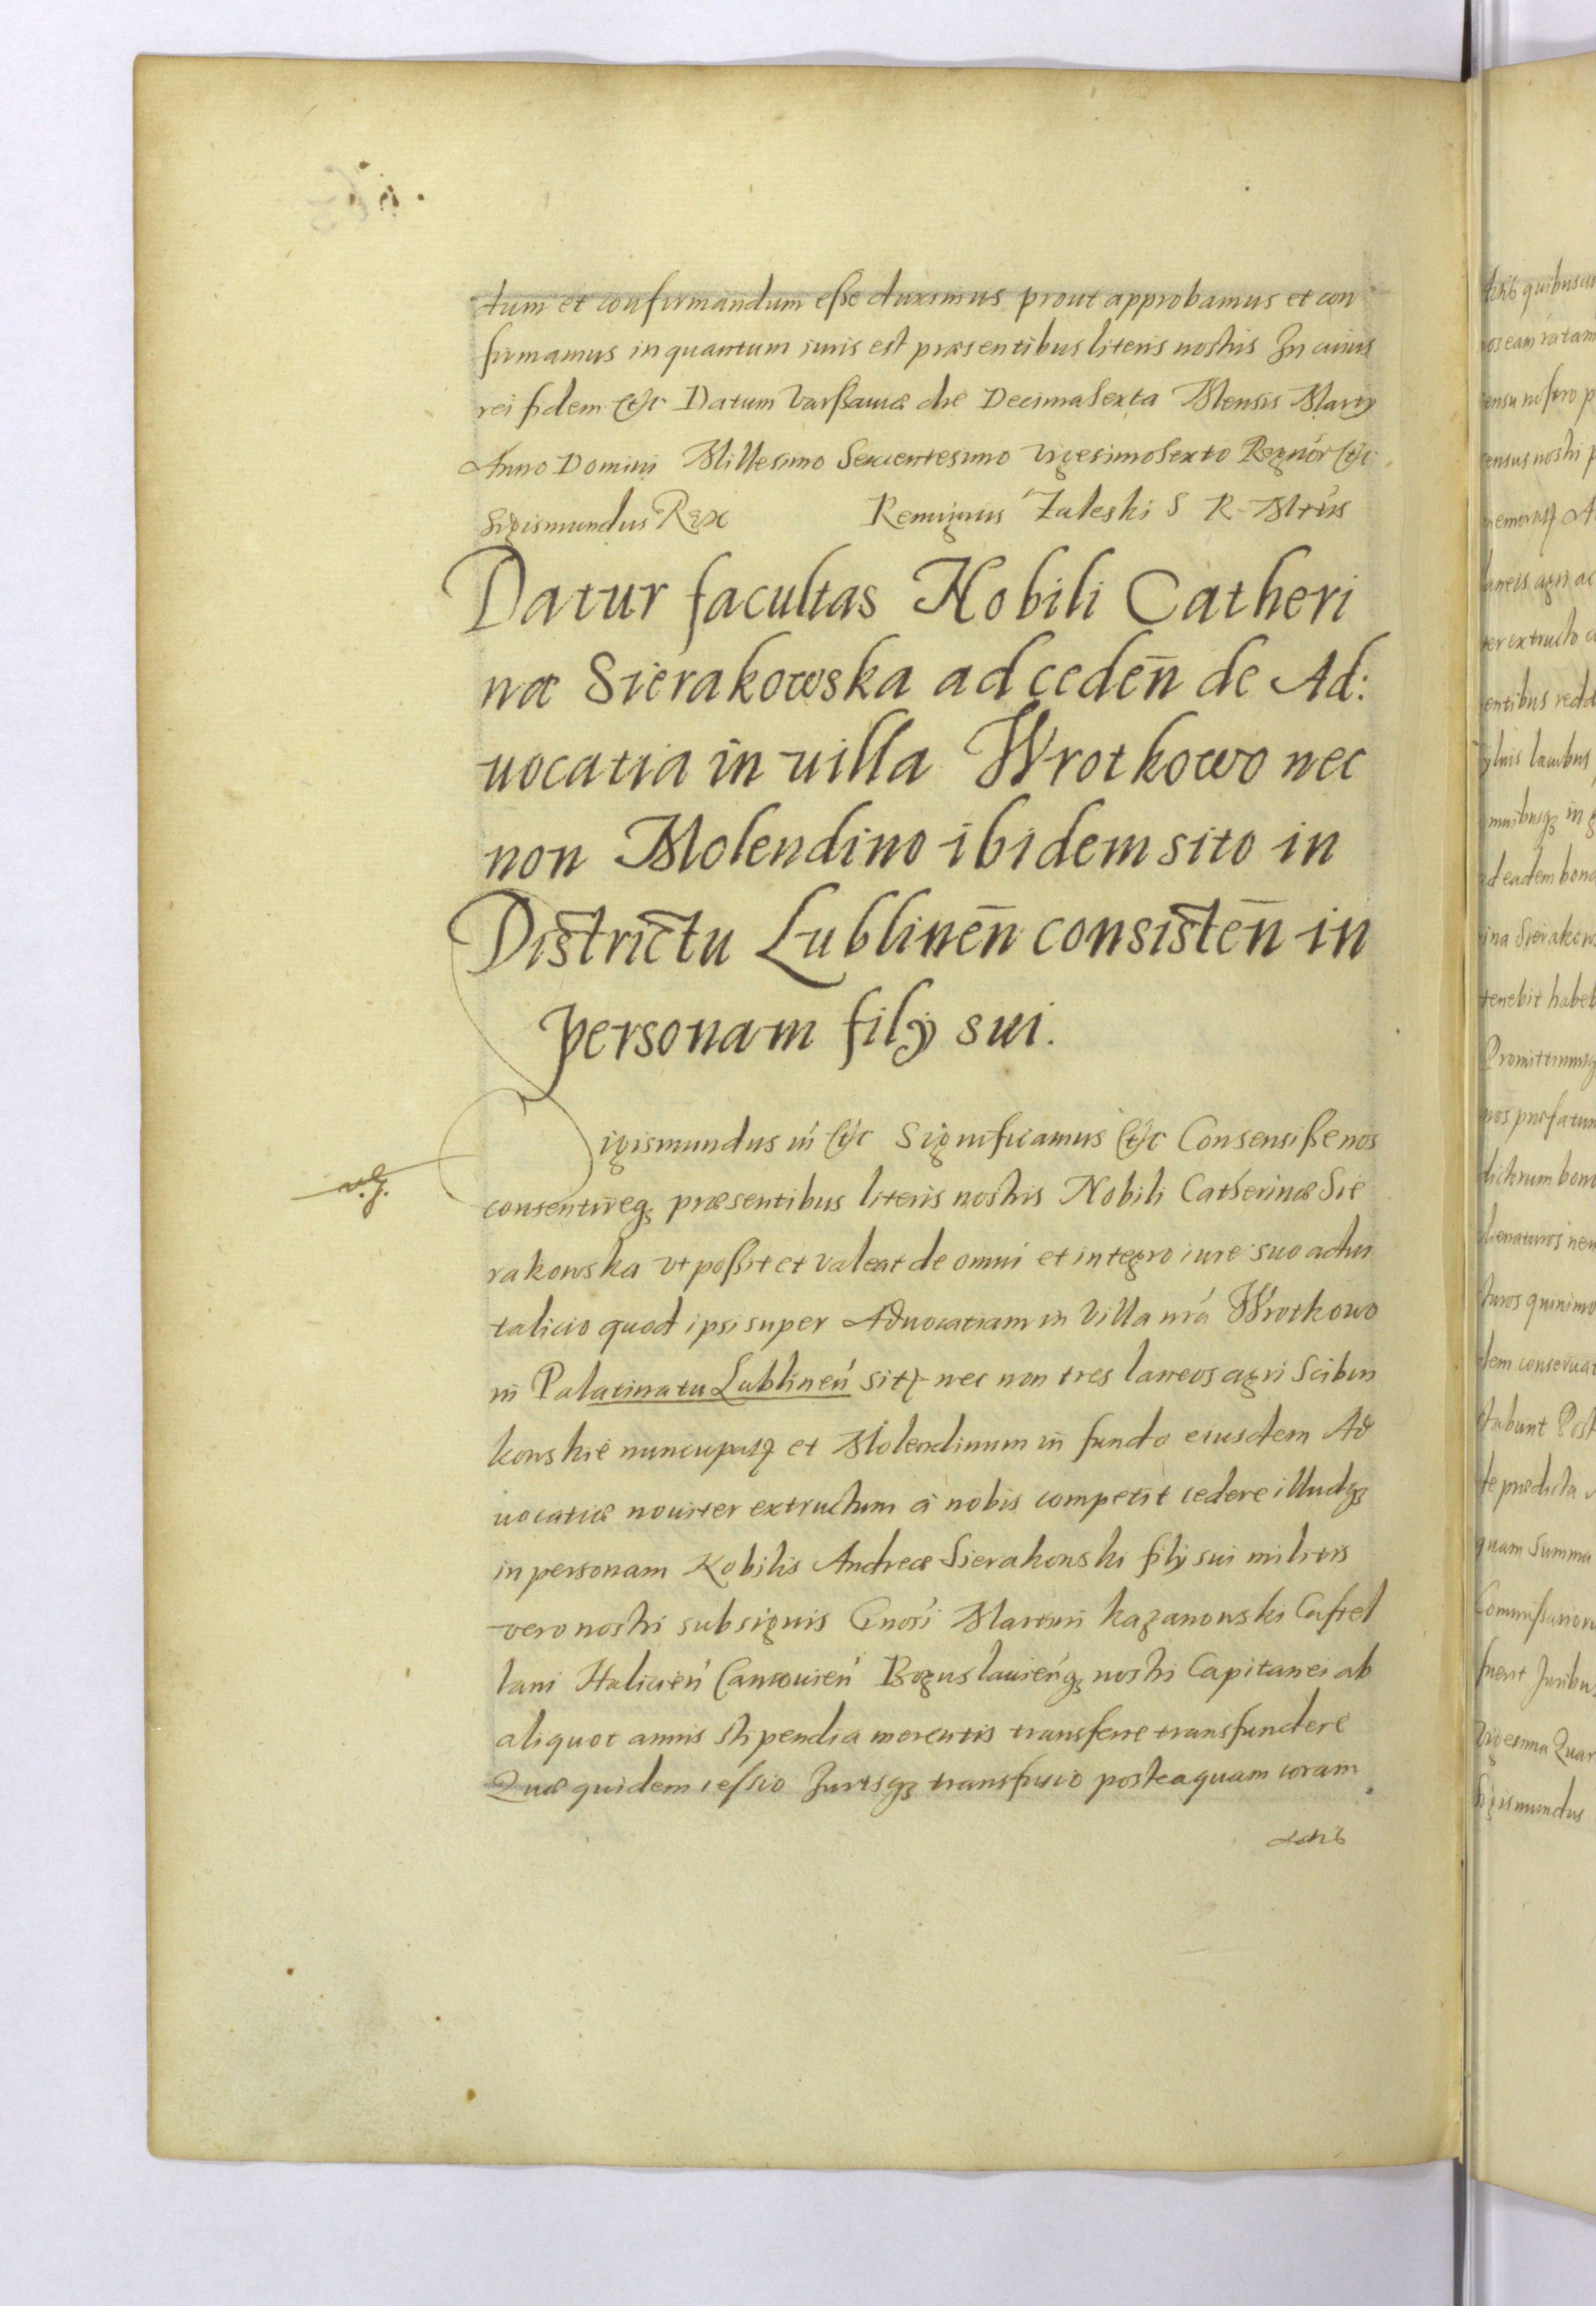 tum et confirmandum esse duximus prout approbamus et con
firmamus in quantum iuris est præsentibus literis nostris In cuius
rei fidem etc Datum Varssaviæ die Decima Sexta Mensis Martij
Anno Domini Millesimo Sexcentesimo Vigesimo Sexto Regnor etc
Sigismundus Rex Remigius Zaleski S R Mtis
Datur facultas Nobili Catheri
næ Sierakowska ad ceden̄ de Ad:
uocatia in uilla Wrotkowo nec
non Molendino ibidem sito in
Districtu Lublinen̄ consisten̄ in
personam filij sui.
Sigismundus III etc Significamus etc Consensisse nos
consentireq; præsentibus literis nostris Nobili Catherinæ Sie
rakowska vt possit et valeat de omni et integro iure suo advi
talicio quod ipsi super Advocatiam in Villa nrā Wrotkowo
in Palatinatu Lublinen̄ sitą nec non tres laneos agri Scibin
kowskie nuncupatą et Molendinum in fundo eiusdem Ad
uocatiæ nouiter extructum à nobis competit cedere illudq;
in personam Nobilis Andreæ Sierakowski filij sui militis
vero nostri sub signis Gnosi Martini Kazanowski Castel
lani Halicien̄ Camouien̄ Boguslauien̄q; nostri Capitanei ab
aliquot annis stipendia merentis transferre transfundere
Quæ quidem cessio Jurisq; transfusio posteaquam coram
Actis